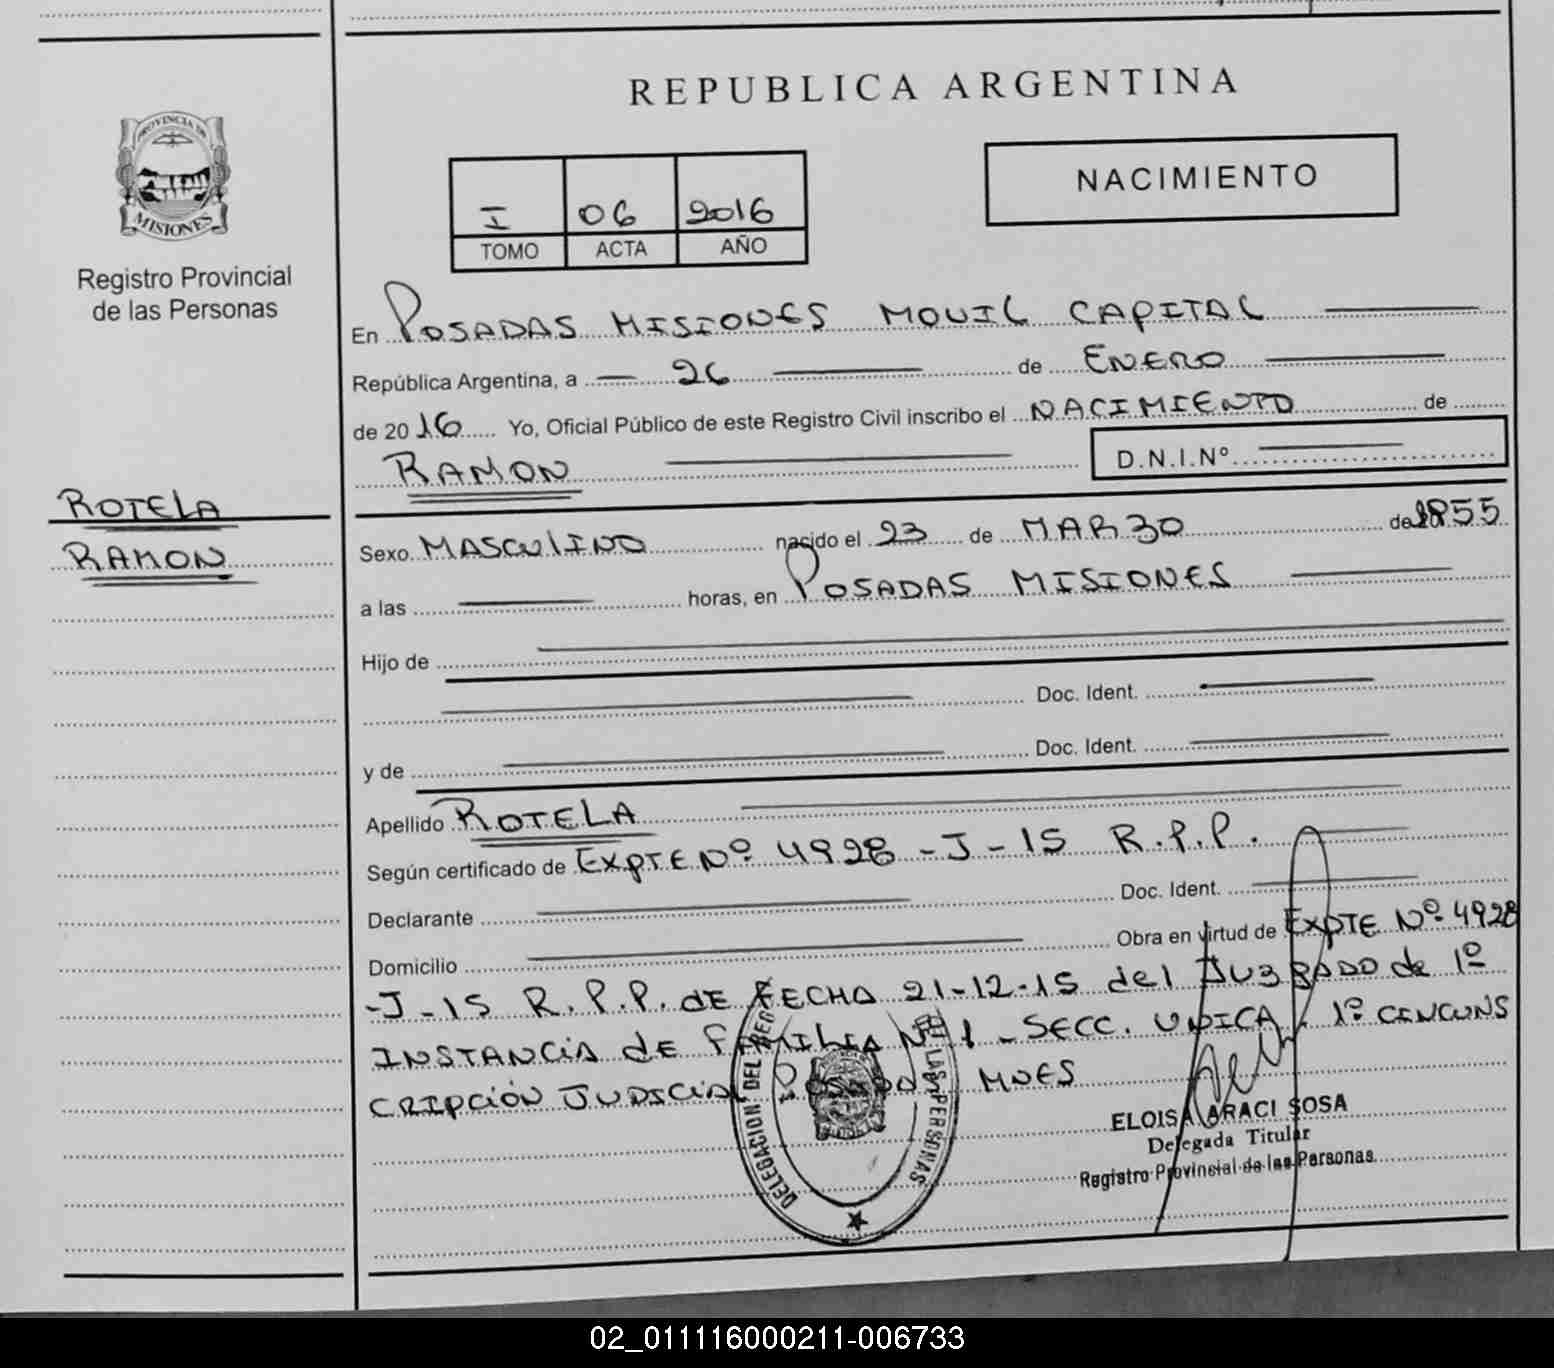 REPUBLICA ARGENTINA
PROVINCIA DE
MISIONES
Registro Provincial
de las Personas
NACIMIENTO
I 06 2016
TOMO ACTA AÑO
En POSADAS MISIONES MOVIL CAPITAL
República Argentina, a 26 de ENERO
de 2016 Yo, Oficial Público de este Registro Civil inscribo el NACIMIENTO de
RAMON D.N.I.Nº
ROTELA
RAMON
Sexo MASCULINO nacido el 23 de MARZO de 1855
a las horas, en POSADAS MISIONES
Hijo de
Doc. Ident.
y de Doc. Ident.
Apellido ROTELA
Según certificado de EXPTE Nº 4928 - J - 15 R.P.P.
Declarante Doc. Ident.
Domicilio Obra en virtud de EXPTE Nº 4928
-J-15 R.P.P. DE FECHA 21-12-15 del JUZGADO de 1º
INSTANCIA dE FAMILIA Nº 1 - SECC. UNICA, 1º CINCUNS
CRIPCIÓN JUDICIAL POSADAS MNES
DELEGACION DEL REG LAS PERSONAS
ELOISA ARACI SOSA
Delegada Titular
Registro Provincial de las Personas
02_011116000211-006733